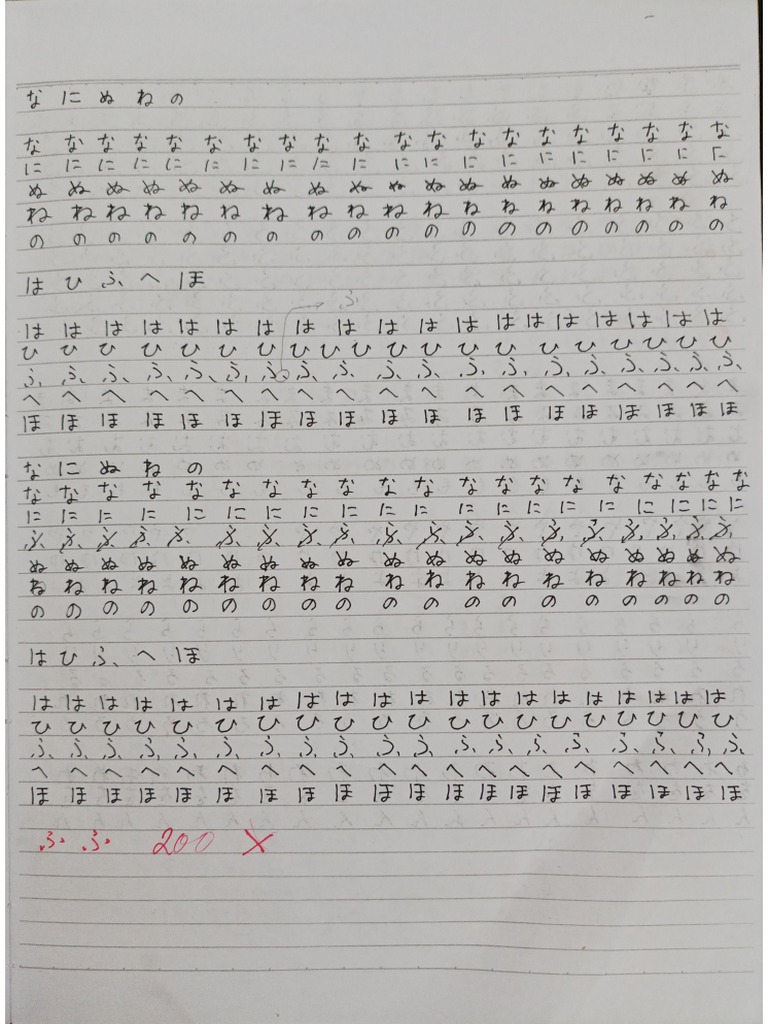 なにぬねの
な な な な な な な な な な な な な な な な な な な な
に に に に に に に に に に に に に に に に に に に に
ぬ ぬ ぬ ぬ ぬ ぬ ぬ ぬ ぬ ぬ ぬ ぬ ぬ ぬ ぬ ぬ ぬ ぬ ぬ
ね ね ね ね ね ね ね ね ね ね ね ね ね ね ね ね ね ね ね
の の の の の の の の の の の の の の の の の の の
はひふへほ
ふ
は は は は は は は は は は は は は は は は は は は
ひ ひ ひ ひ ひ ひ ひ ひ ひ ひ ひ ひ ひ ひ ひ ひ ひ ひ ひ ひ
ふ ふ ふ ふ ふ ふ ふ ふ ふ ふ ふ ふ ふ ふ ふ ふ ふ ふ ふ
へ へ へ へ へ へ へ へ へ へ へ へ へ へ へ へ へ へ へ
ほ ほ ほ ほ ほ ほ ほ ほ ほ ほ ほ ほ ほ ほ ほ ほ ほ ほ ほ
なにぬねの
な な な な な な な な な な な な な な な な な な な な
に に に に に に に に に に に に に に に に に に に に
ふ ふ ふ ふ ふ ふ ふ ふ ふ ふ ふ ふ ふ ふ ふ ふ ふ ふ ふ
ぬ ぬ ぬ ぬ ぬ ぬ ぬ ぬ ぬ ぬ ぬ ぬ ぬ ぬ ぬ ぬ ぬ ぬ ぬ
ね ね ね ね ね ね ね ね ね ね ね ね ね ね ね ね ね ね ね
の の の の の の の の の の の の の の の の の の の
はひふへほ
は は は は は は は は は は は は は は は は は は は は
ひ ひ ひ ひ ひ ひ ひ ひ ひ ひ ひ ひ ひ ひ ひ ひ ひ ひ ひ ひ
ふ ふ ふ ふ ふ ふ ふ ふ ふ ふ ふ ふ ふ ふ ふ ふ ふ ふ ふ
へ へ へ へ へ へ へ へ へ へ へ へ へ へ へ へ へ へ へ へ
ほ ほ ほ ほ ほ ほ ほ ほ ほ ほ ほ ほ ほ ほ ほ ほ ほ ほ ほ ほ
ふ ふ 200 X